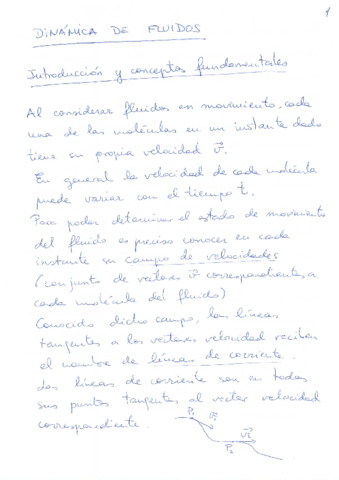 1
DINÁMICA DE FLUIDOS
Introducción y conceptos fundamentales
Al considerar fluidos en movimiento, cada
una de las moléculas en un instante dado
tiene su propia velocidad v⃗.
En general la velocidad de cada molécula
puede variar con el tiempo t.
Para poder determinar el estado de movimiento
del fluido es preciso conocer en cada
instante su campo de velocidades
(conjunto de vectores v⃗ correspondientes a
cada molécula del fluido)
Conocido dicho campo, las líneas
tangentes a los vectores velocidad reciben
el nombre de líneas de corriente.
Las líneas de corriente son en todos
sus puntos tangentes al vector velocidad
correspondiente.
P₁ v⃗₁
P₂ v⃗₂